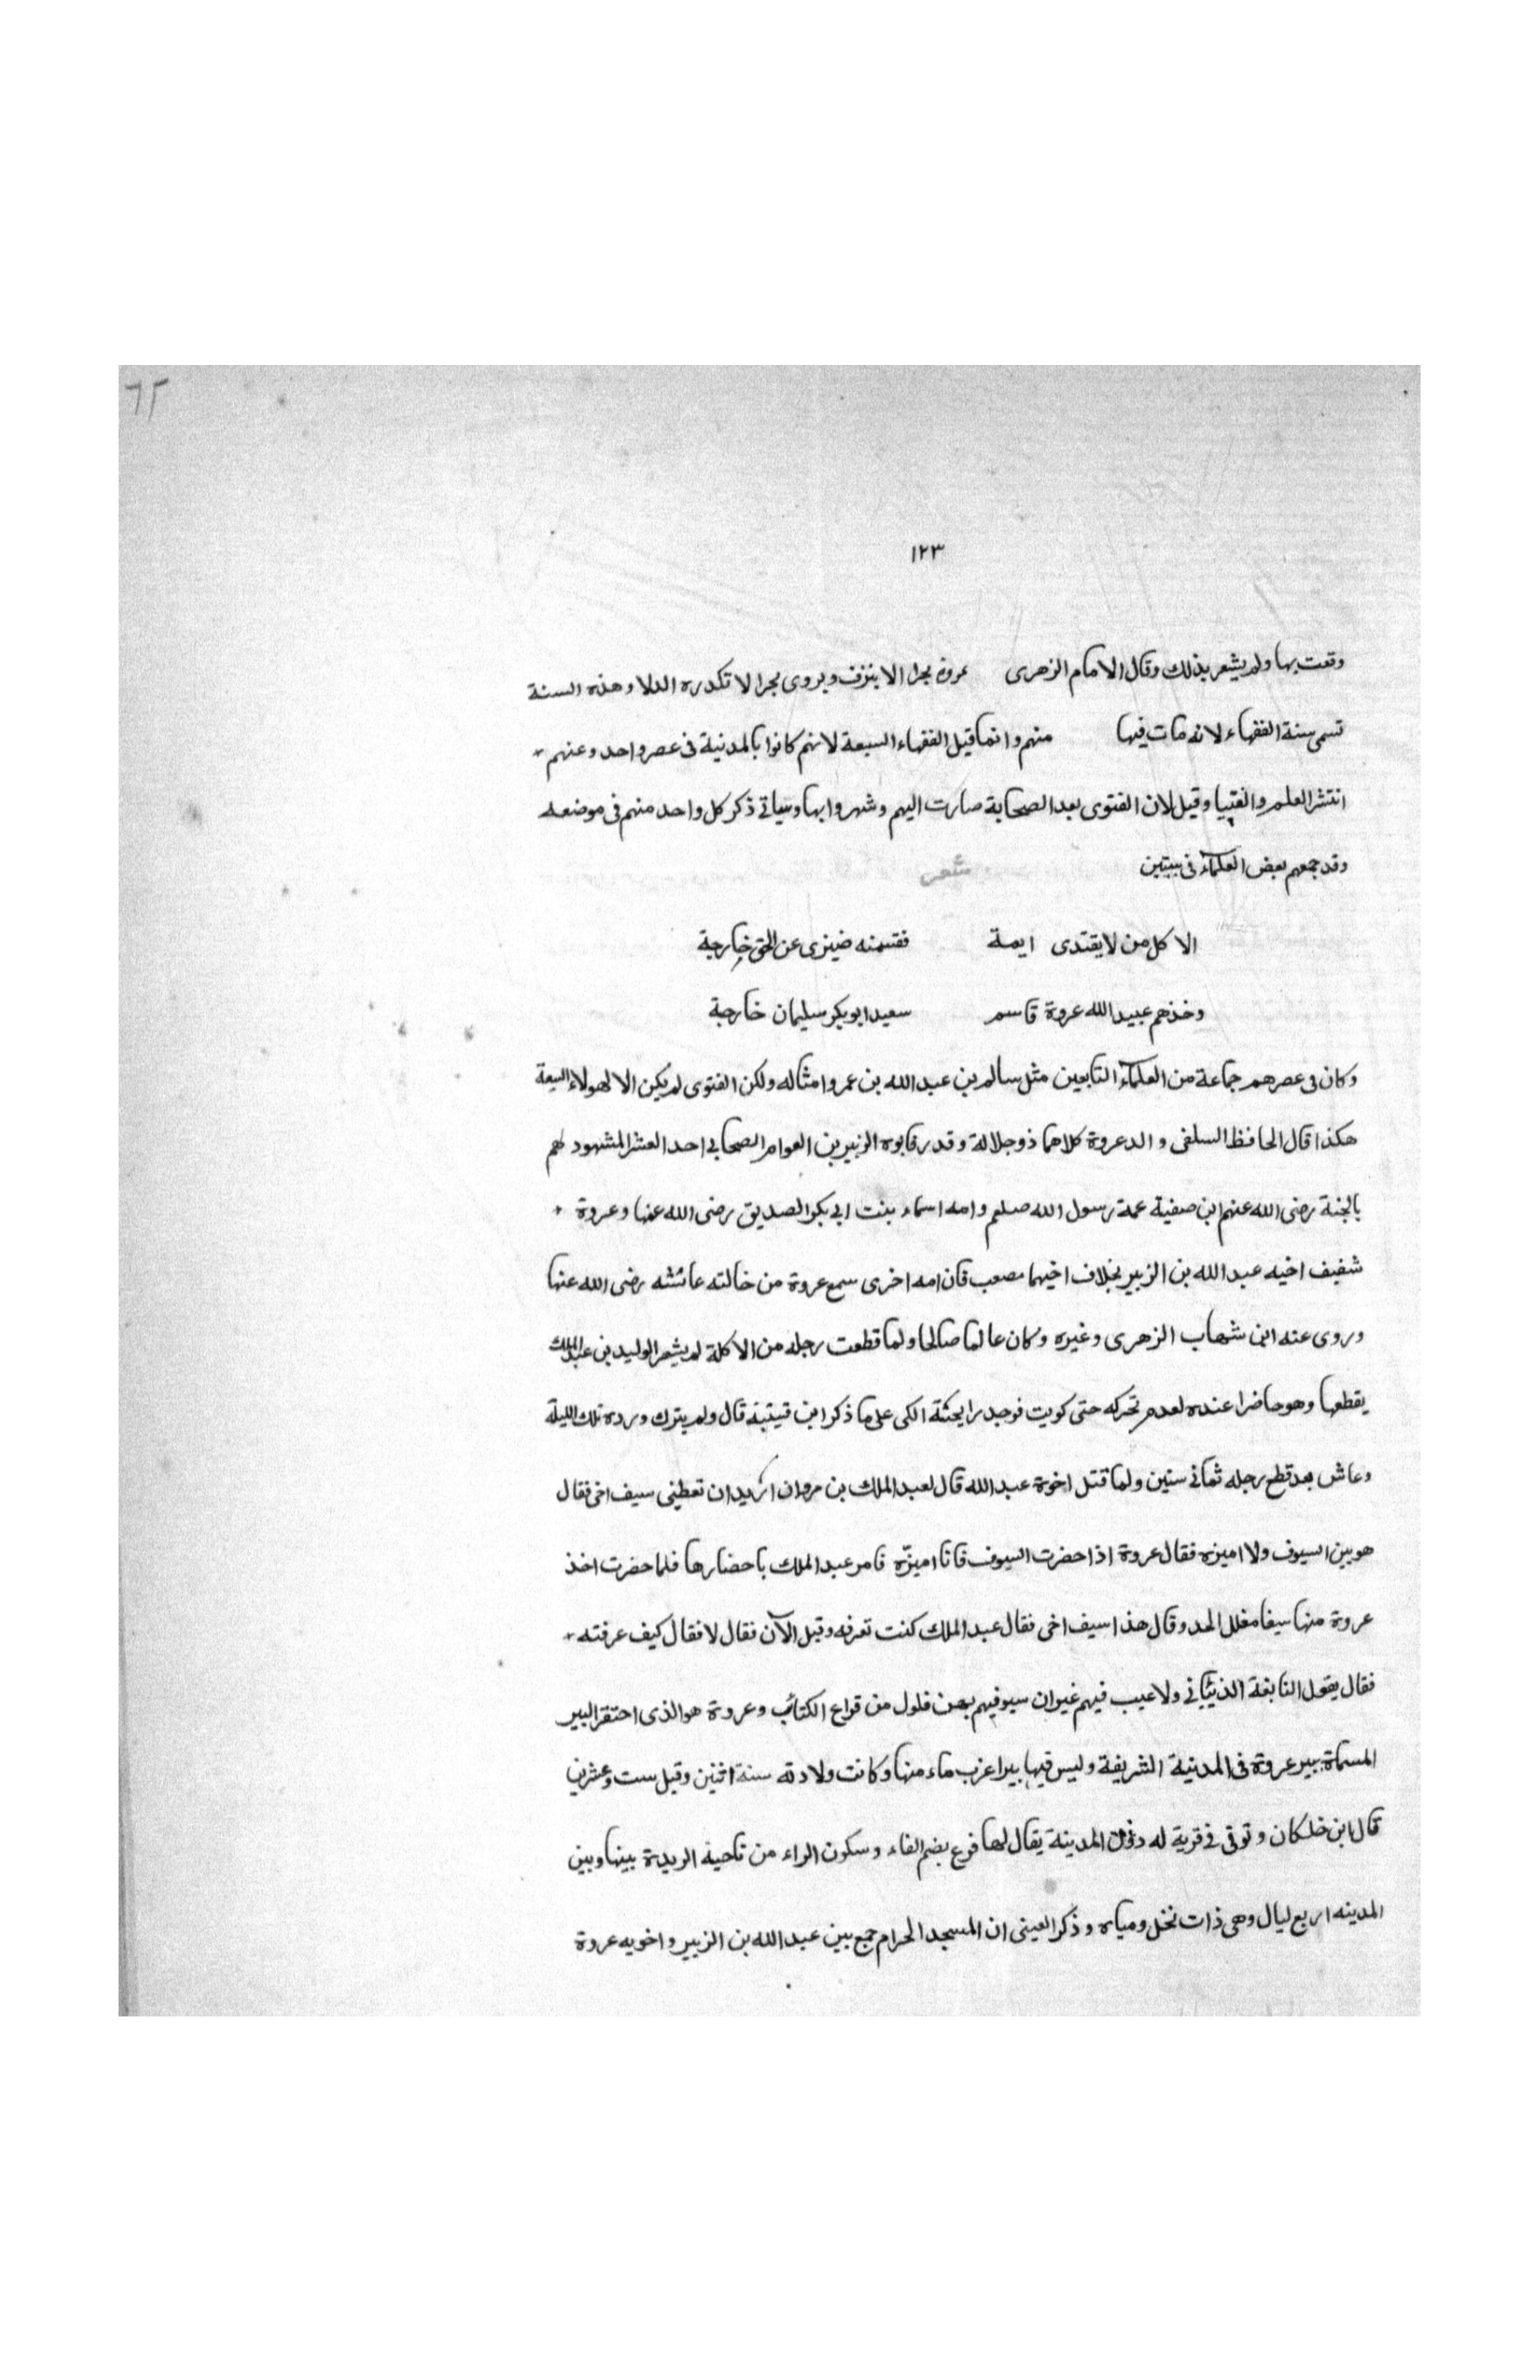 ٦٢
١٢٣
وقعت بها ولم يشعر بذلك وقال الامام الزهرى عروة بحرا لا ينزف ويروى بحرا لا تكدره الدلا وهذه السنة
تسمى سنة الفقهاء لانه مات فيها منهم وانما قيل الفقهاء السبعة لانهم كانوا بالمدنية فى عصر واحد وعنهم
انتشر العلم والفتيا وقيل لان الفتوى بعد الصحابة صارت اليهم وشهروا بها وسياتى ذكر كل واحد منهم فى موضعه
وقد جمعهم بعض العلماء فى بيتين شعر
الا كل من لا يقتدى ايمة فقسمته ضيزى عن الحق خارجة
وخذهم عبيد الله عروة قاسم سعيد ابو بكر سليمان خارجة
وكان فى عصرهم جماعة من العلماء التابعين مثل سالم بن عبد الله بن عمر وامثاله ولكن الفتوى لم يكن الا لهولاء السبعة
هكذا قال الحافظ السلفى والد عروة كلاهما ذو جلالة وقدر فابوه الزبير بن العوام الصحابى احد العشر المشهود لهم
بالجنة رضى الله عنهم ابن صفية عمة رسول الله صلم وامه اسماء بنت ابى بكر الصديق رضى الله عنها وعروة
شفيف اخيه عبد الله بن الزبير بخلاف اخيهما مصعب فان امه اخرى سمع عروة من خالته عائشه رضى الله عنها
وروى عنه ابن شهاب الزهرى وغيره وكان عالما صالحا ولما قطعت رجله من الاكلة لم يشعر الوليد بن عبد الملك
يقطعها وهو حاضرا عنده لعدم تحركه حتى كويت فوجد رايحثة الكى على ما ذكر ابن قيتبة قال ولم يترك ورده تلك الليلة
وعاش بعد قطع رجله ثمانى سنين ولما قتل اخوة عبد الله قال لعبد الملك بن مروان اريد ان تعطينى سيف اخى فقال
هو بين السيوف ولا اميزه فقال عروة اذا حضرت السيوف فانا اميّزه فامر عبد الملك باحضارها فلما حضرت اخذ
عروة منها سيفا مفلل الحد وقال هذا سيف اخى فقال عبد الملك كنت تعرفه وقبل الآن فقال لا فقال كيف عرفته
فقال يقول النابغة الذبيانى ولا عيب فيهم غيران سيوفهم بهن فلول من قراع الكتائب وعروة هو الذى احتقر البير
المسماة ببير عروة فى المدنية الشريفة وليس فيها بيرا عزب ماء منها وكانت ولادته سنة اثنين وقيل ست وعشرين
قال ابن خلكان وتوفى فى قرية له دون المدينة يقال لها فرع بضم الفاء وسكون الراء من ناحية الربدة بينها وبين
المدينه اربع ليال وهى ذات نخل ومياه وذكر العينى ان المسجد الحرام جمع بين عبد الله بن الزبير واخويه عروة